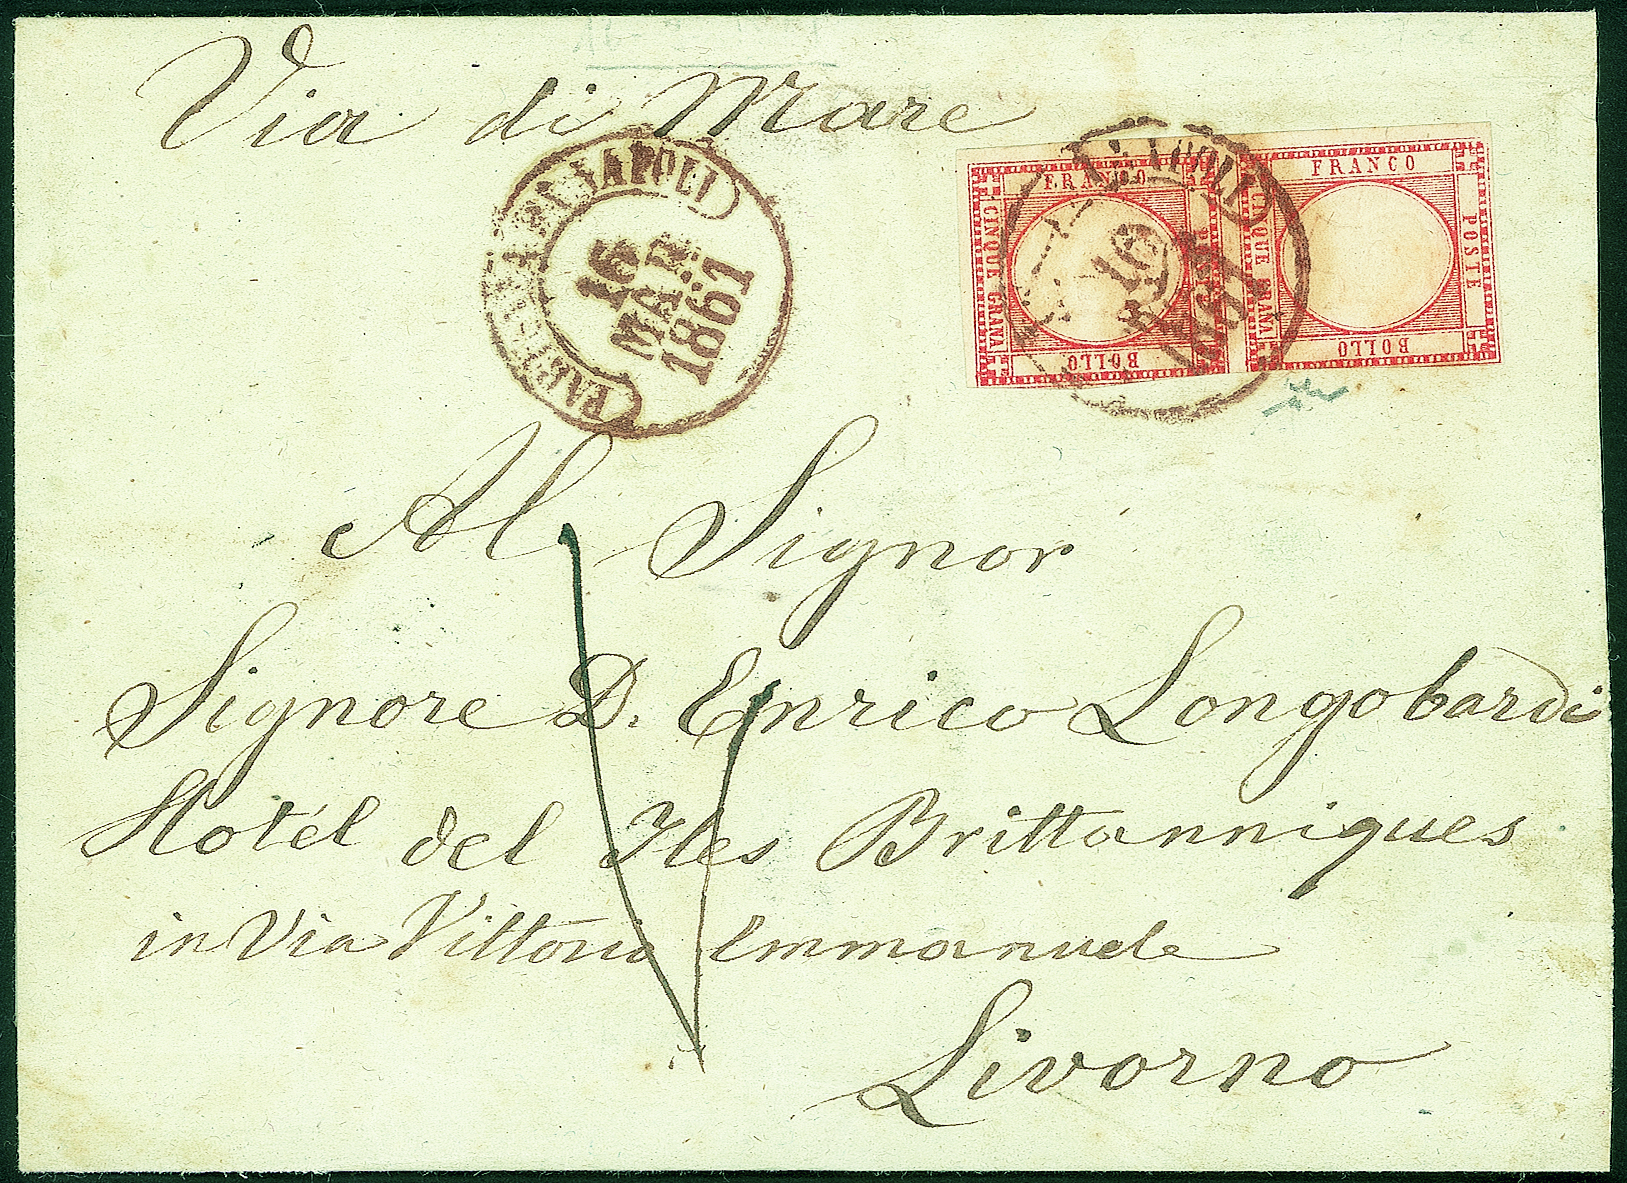 Via di Mare
PARTENZA DA NAPOLI
16
MAR
1861
NAPOLI
16
FRANCO
CINQUE GRANA
BOLLO
FRANCO
POSTE
CINQUE GRANA
BOLLO
Al Signor
Signore D. Enrico Longobardi
Hotél del Iles Brittanniques
in Via Vittorio Emmanuele
Livorno